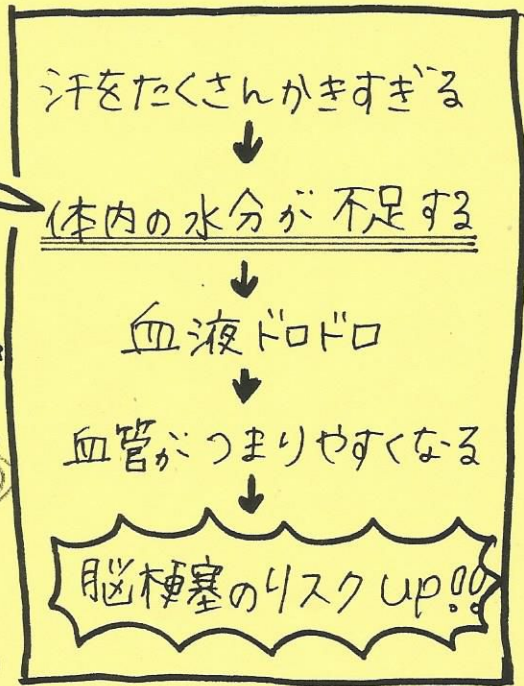 汗をたくさんかきすぎる
↓
体内の水分が不足する
↓
血液ドロドロ
↓
血管がつまりやすくなる
↓
脳梗塞のリスクup!!